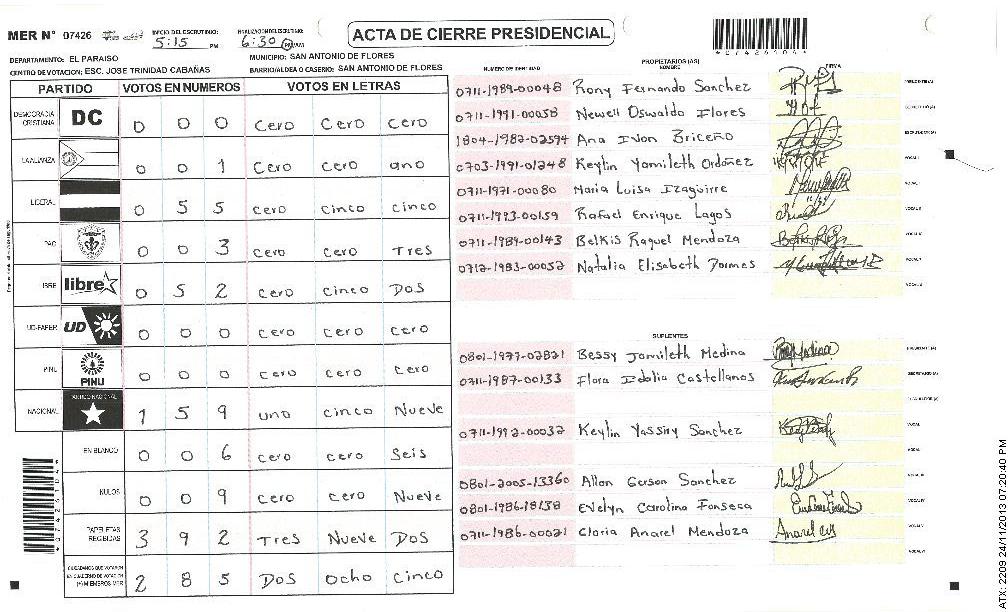 MER N° 07426
INICIO DEL ESCRUTINIO:
5:15 PM
FINALIZACION DEL ESCRUTINIO:
6:30 PM/AM
ACTA DE CIERRE PRESIDENCIAL
DEPARTAMENTO: EL PARAISO
MUNICIPIO: SAN ANTONIO DE FLORES
CENTRO DE VOTACION: ESC. JOSE TRINIDAD CABAÑAS
BARRIO/ALDEA O CASERIO: SAN ANTONIO DE FLORES
PARTIDO VOTOS EN NUMEROS VOTOS EN LETRAS
DEMOCRACIA CRISTIANA DC 0 0 0 Cero Cero Cero
LA ALIANZA 0 0 1 Cero Cero uno
LIBERAL 0 5 5 Cero cinco cinco
PAC 0 0 3 Cero Cero Tres
LIBRE libre 0 5 2 Cero Cinco Dos
UD-FAPER UD 0 0 0 Cero Cero Cero
PINU PINU 0 0 0 Cero Cero Cero
NACIONAL PARTIDO NACIONAL 1 5 9 uno cinco Nueve
EN BLANCO 0 0 6 Cero Cero Seis
NULOS 0 0 9 Cero Cero Nueve
PAPELETAS RECIBIDAS 3 9 2 Tres Nueve Dos
CIUDADANOS QUE VOTARON EN CUADERNO DE VOTACION (+) MIEMBROS MER 2 8 5 Dos Ocho Cinco
PROPIETARIOS (AS)
NUMERO DE IDENTIDAD NOMBRE FIRMA
0711-1989-00048 Rony Fernando Sanchez
0711-1991-00058 Newell Oswaldo Flores
1804-1982-02594 Ana Ivon Briceño
0703-1991-01248 Keylin Yamileth Ordoñez
0711-1971-00080 Maria Luisa Izaguirre
0711-1993-00159 Rafael Enrique Lagos
0711-1989-00143 Belkis Raquel Mendoza
0712-1983-00052 Natalia Elisabeth Dormes
SUPLENTES
0801-1977-02821 Bessy Jamileth Medina
0711-1987-00133 Flora Idalia Castellanos
0711-1992-00032 Keylin Yassiry Sanchez
0801-2005-13360 Allan Gerson Sanchez
0801-1986-18138 Evelyn Carolina Fonseca
0711-1986-00021 Gloria Anarel Mendoza
ATX: 2209 24/11/2013 07:20:40 PM